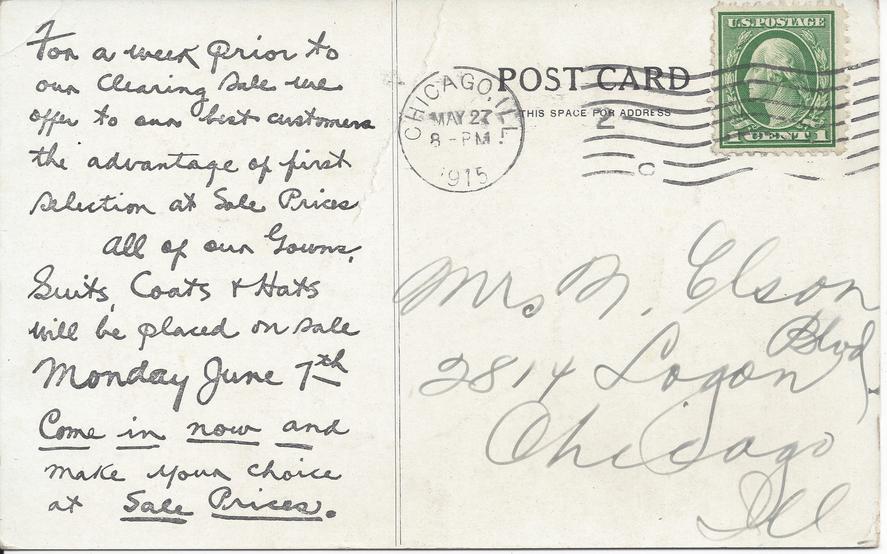 For a week prior to
our Clearing Sale we
offer to our best customers
the advantage of first
selection at Sale Prices
All of our Gowns,
Suits, Coats & Hats
will be placed on sale
Monday June 7th
Come in now and
make your choice
at Sale Prices.
U.S. POSTAGE
1 CENT 1
POST CARD
THIS SPACE FOR ADDRESS
CHICAGO, ILL.
MAY 27
8 - PM
1915
2
C
Mrs N. Elson
2814 Logan Blvd.
Chicago
Ill